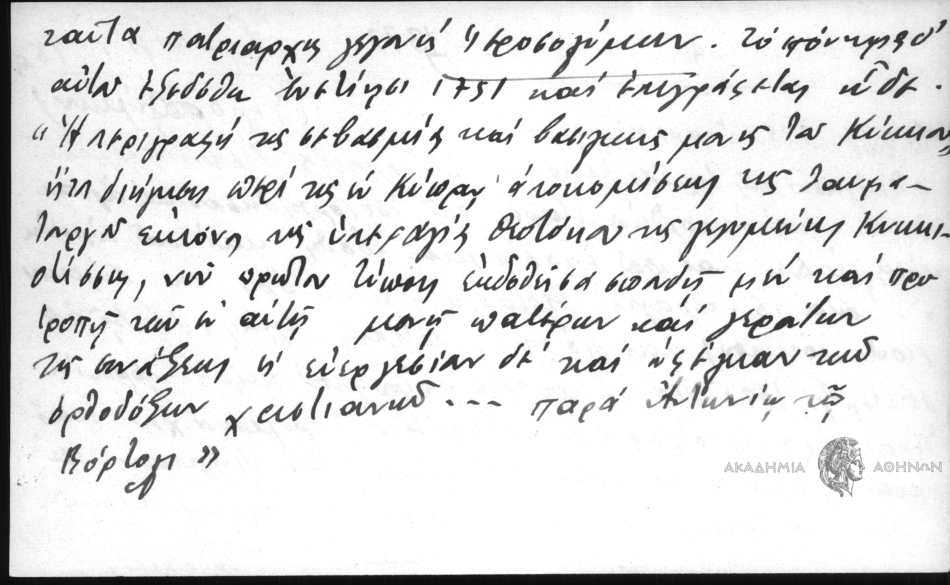 ταῦτα πατριάρχης γεγονώς Ἱεροσολύμων. Τὸ πόνημα
αὐτοῦ ἐξεδόθη Ἐνετίησι 1751 καὶ ἐπιγράφεται ὧδε.
"Ἡ περιγραφὴ τῆς σεβασμίας καὶ βασιλικῆς μονῆς τοῦ Κύκκου
ἤτοι διήγησις περὶ τῆς ἐν Κύπρῳ ἀποκομίσεως τῆς θαυμα-
τουργοῦ εἰκόνος τῆς ὑπεραγίας Θεοτόκου τῆς λεγομένης Κυκκι-
ωτίσσης, νῦν πρῶτον τύποις ἐκδοθεῖσα σπουδῇ μὲν καὶ προ
τροπῇ τῶν ἐν αὐτῇ μονῇ πατέρων καὶ γερόντων
τῆς συνάξεως εἰς εὐεργεσίαν δὲ καὶ ὠφέλειαν τῶν
ὀρθοδόξων χριστιανῶν --- παρὰ Ἀντωνίῳ τῷ
Βόρτολι"
ΑΚΑΔΗΜΙΑ ΑΘΗΝΩΝ